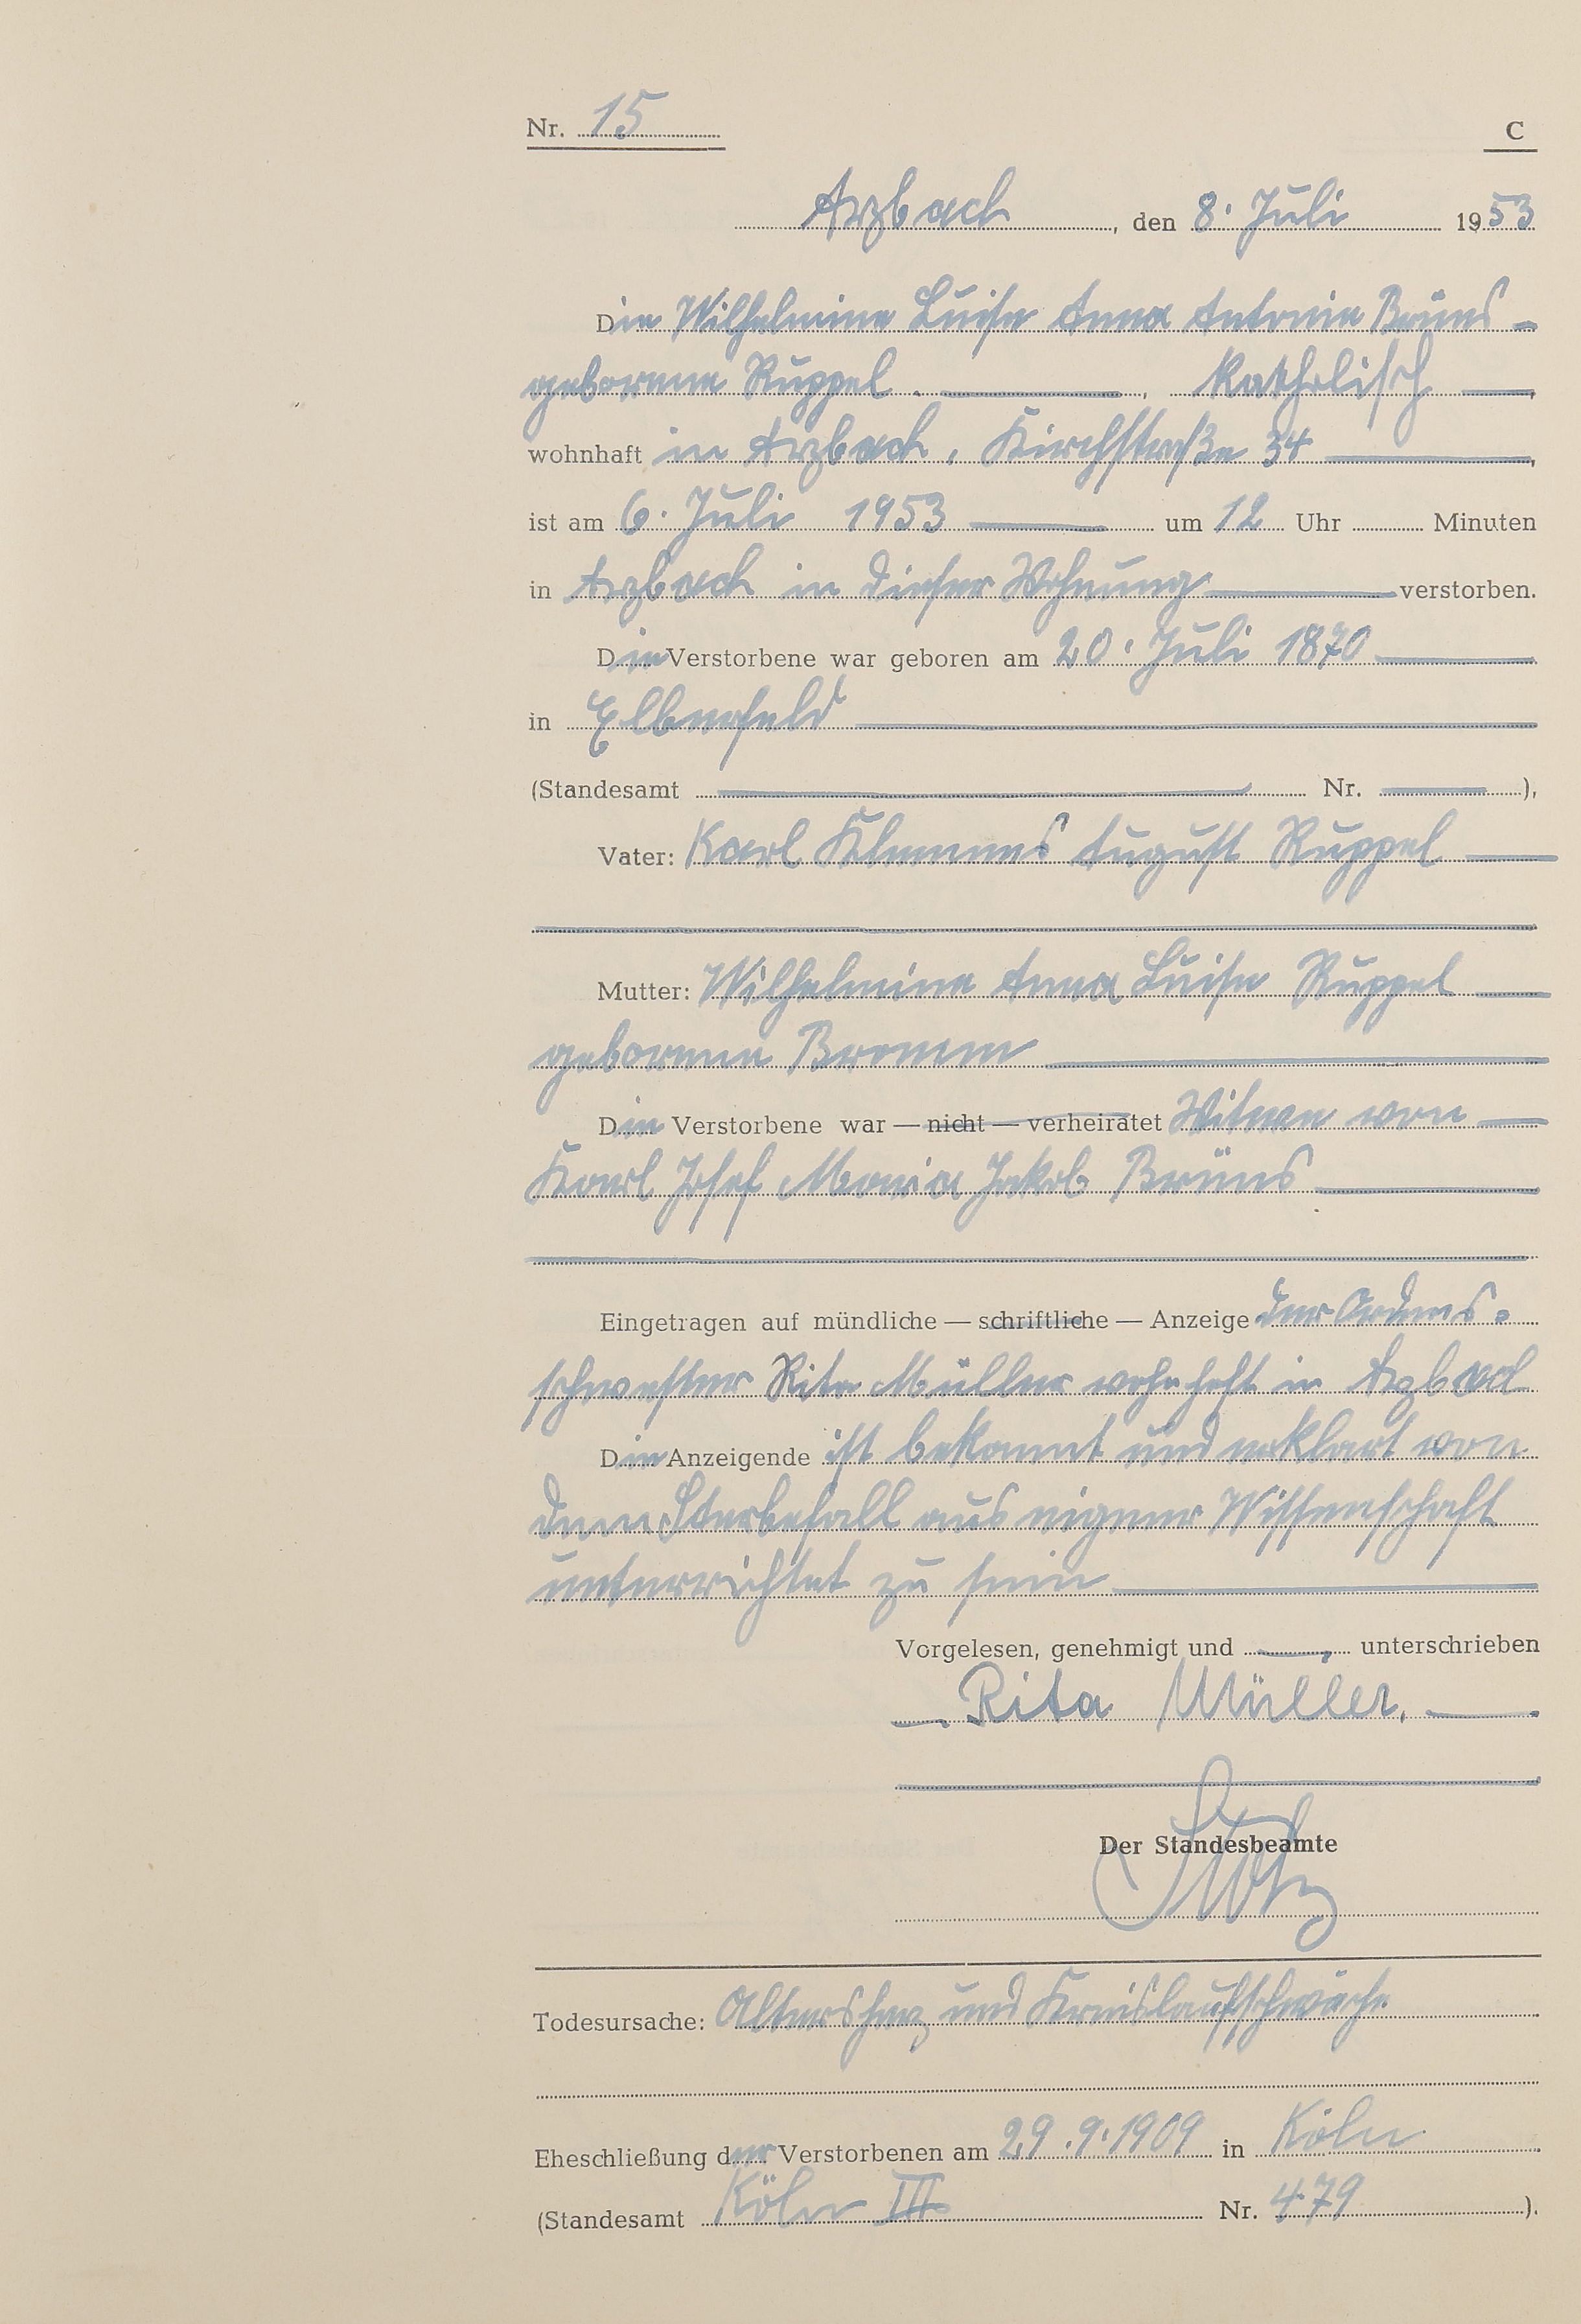 Nr. 15 C
Arzbach, den 8. Juli 1953
Die Wilhelmine Luise Anna Antonie Brüns -
geborene Ruppel. —, katholisch —,
wohnhaft in Arzbach, Kirchstraße 34 —,
ist am 6. Juli 1953 — um 12 Uhr Minuten
in Arzbach in dieser Wohnung — verstorben.
Die Verstorbene war geboren am 20. Juli 1870 —
in Elberfeld —
(Standesamt — Nr. —),
Vater: Karl Klemens August Ruppel —
Mutter: Wilhelmine Anna Luise Ruppel —
geborene Bromm —
Die Verstorbene war — nicht — verheiratet Witwe von —
Karl Josef Maria Jakob Brüns —
Eingetragen auf mündliche — schriftliche — Anzeige der Ordens-
schwester Rita Müller wohnhaft in Arzbach
Die Anzeigende ist bekannt und erklärt von
dem Sterbefall aus eigener Wissenschaft
unterrichtet zu sein —
Vorgelesen, genehmigt und — unterschrieben
Rita Müller. —
Der Standesbeamte
Todesursache: Altersherz und Kreislaufschwäche
Eheschließung der Verstorbenen am 29.9.1909 in Köln
(Standesamt Köln III Nr. 479).